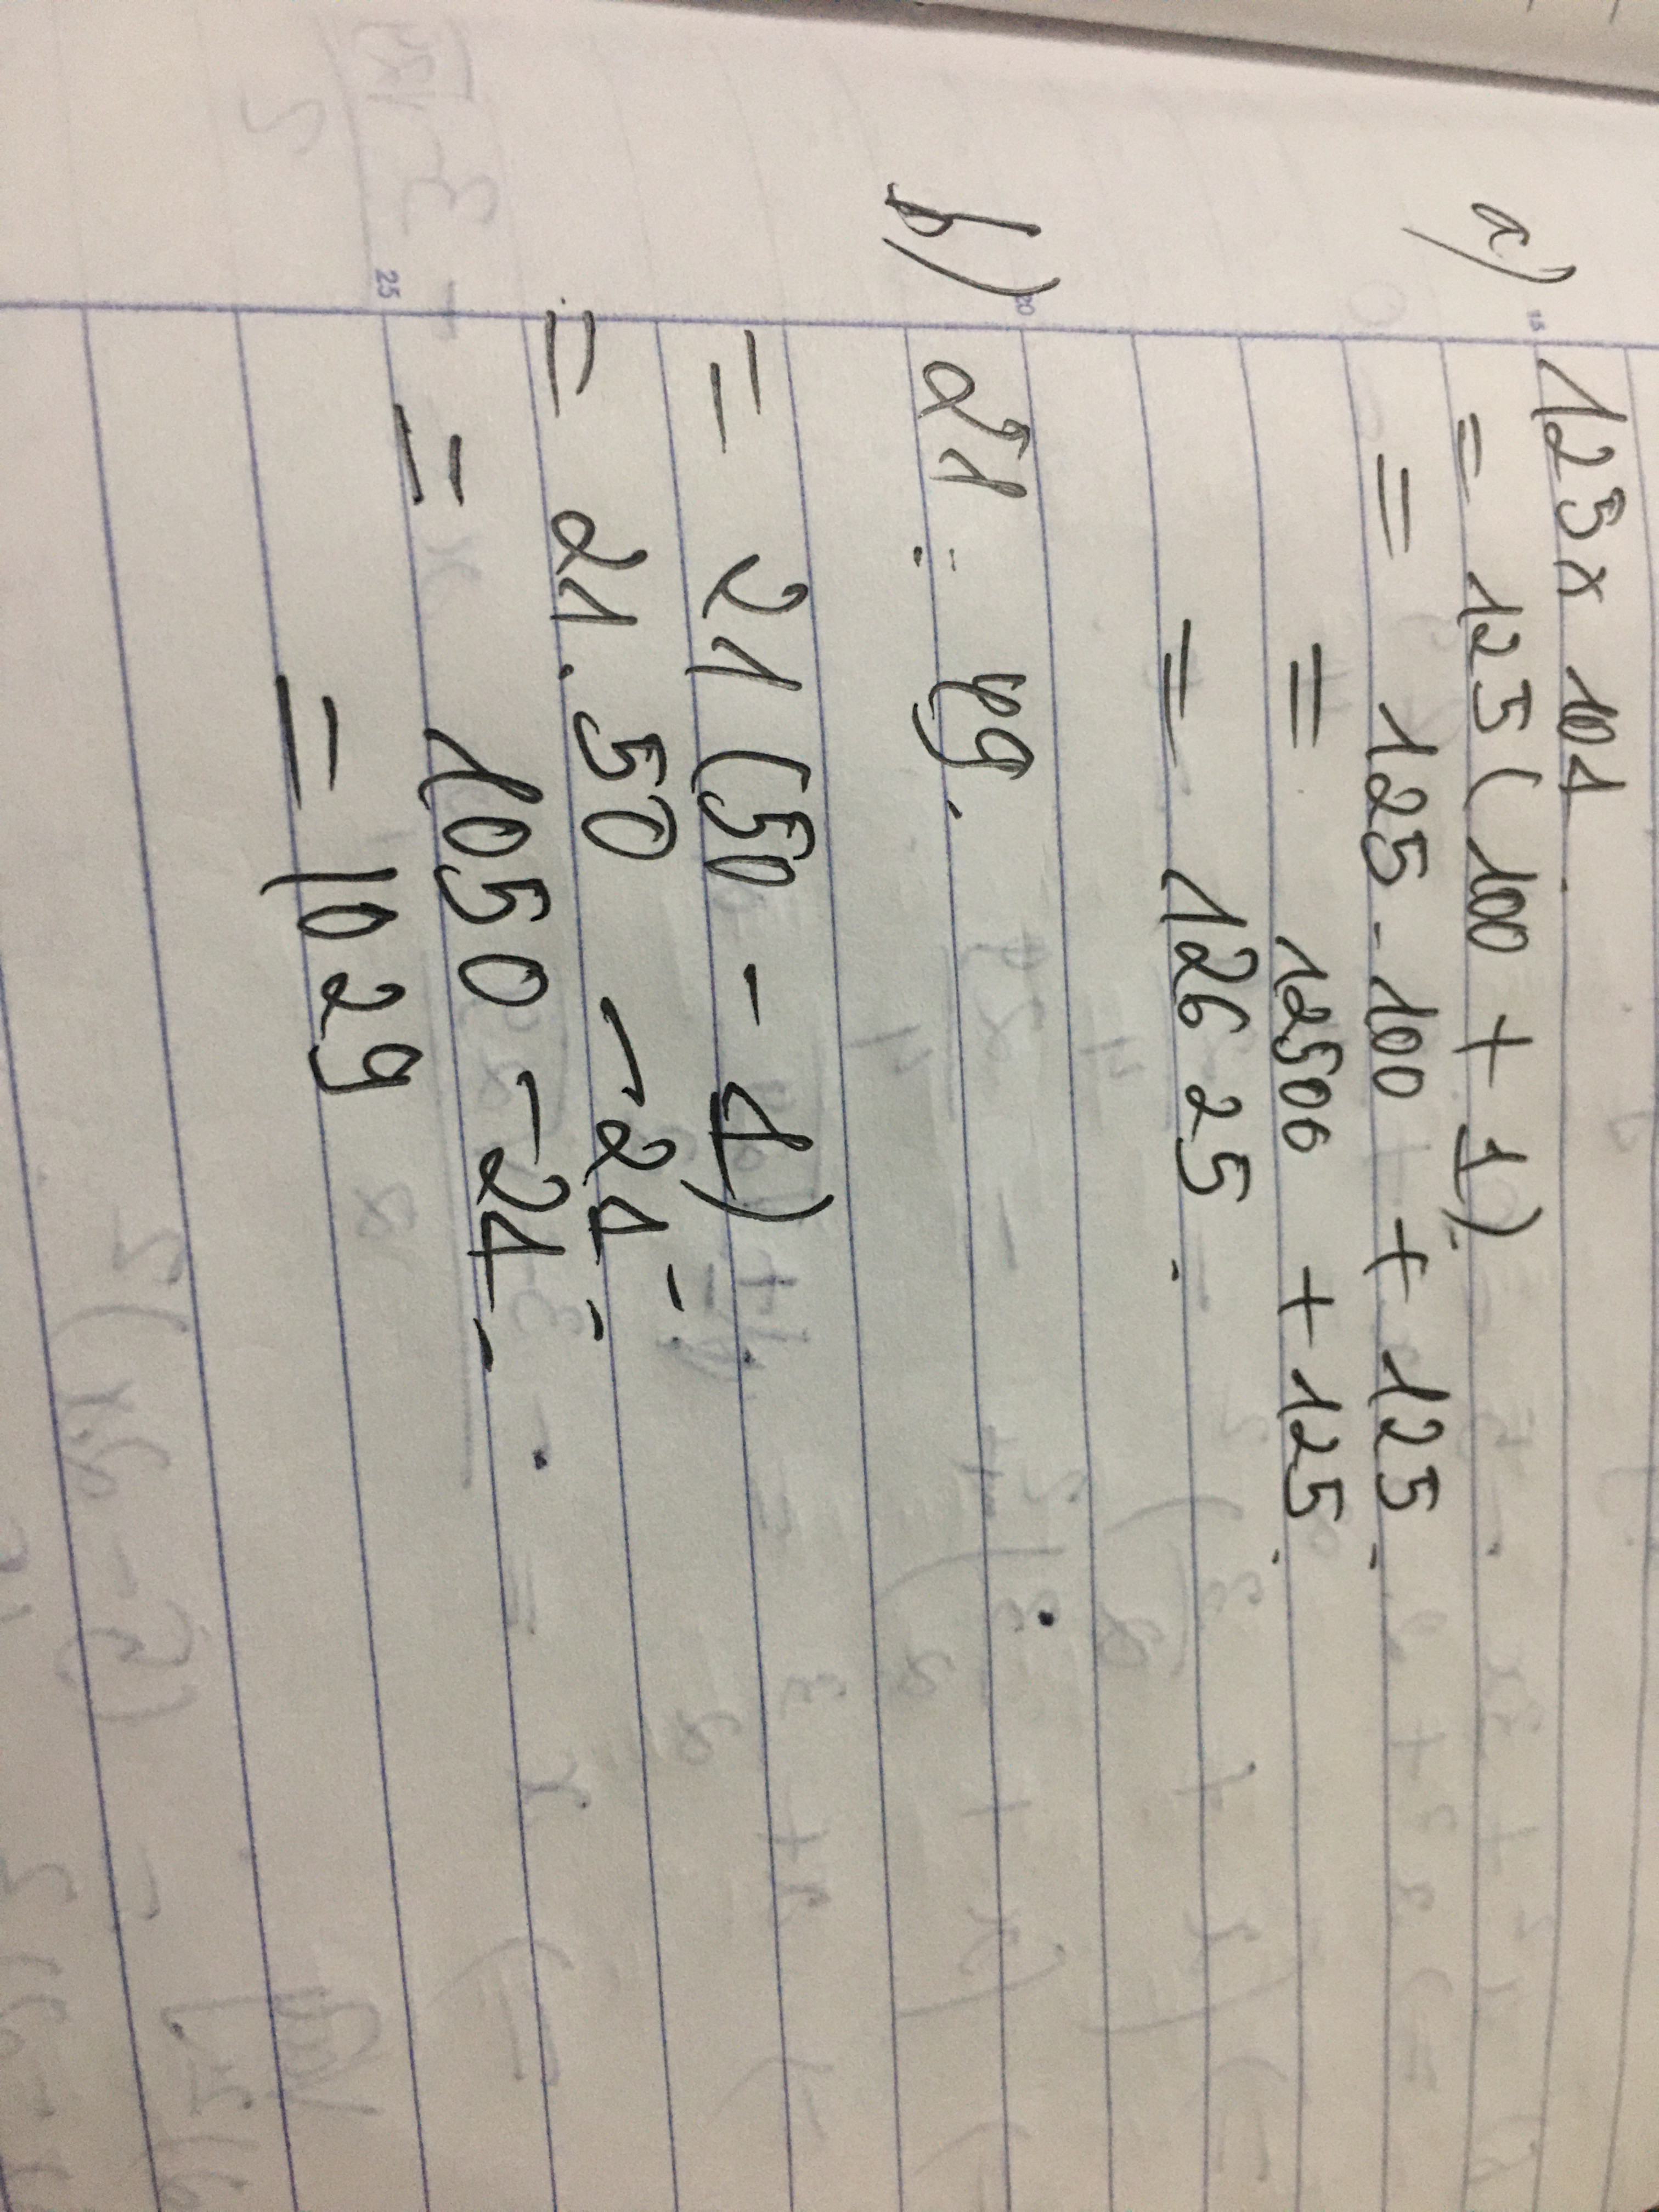 15
a) 125 x 101.
= 125 ( 100 + 1).
= 125 . 100 + 125.
= 12500 + 125.
= 12625.
20
b) 21 . 49.
= 21 (50 - 1)
= 21 . 50 - 21.
= 1050 - 21.
25
= 1029